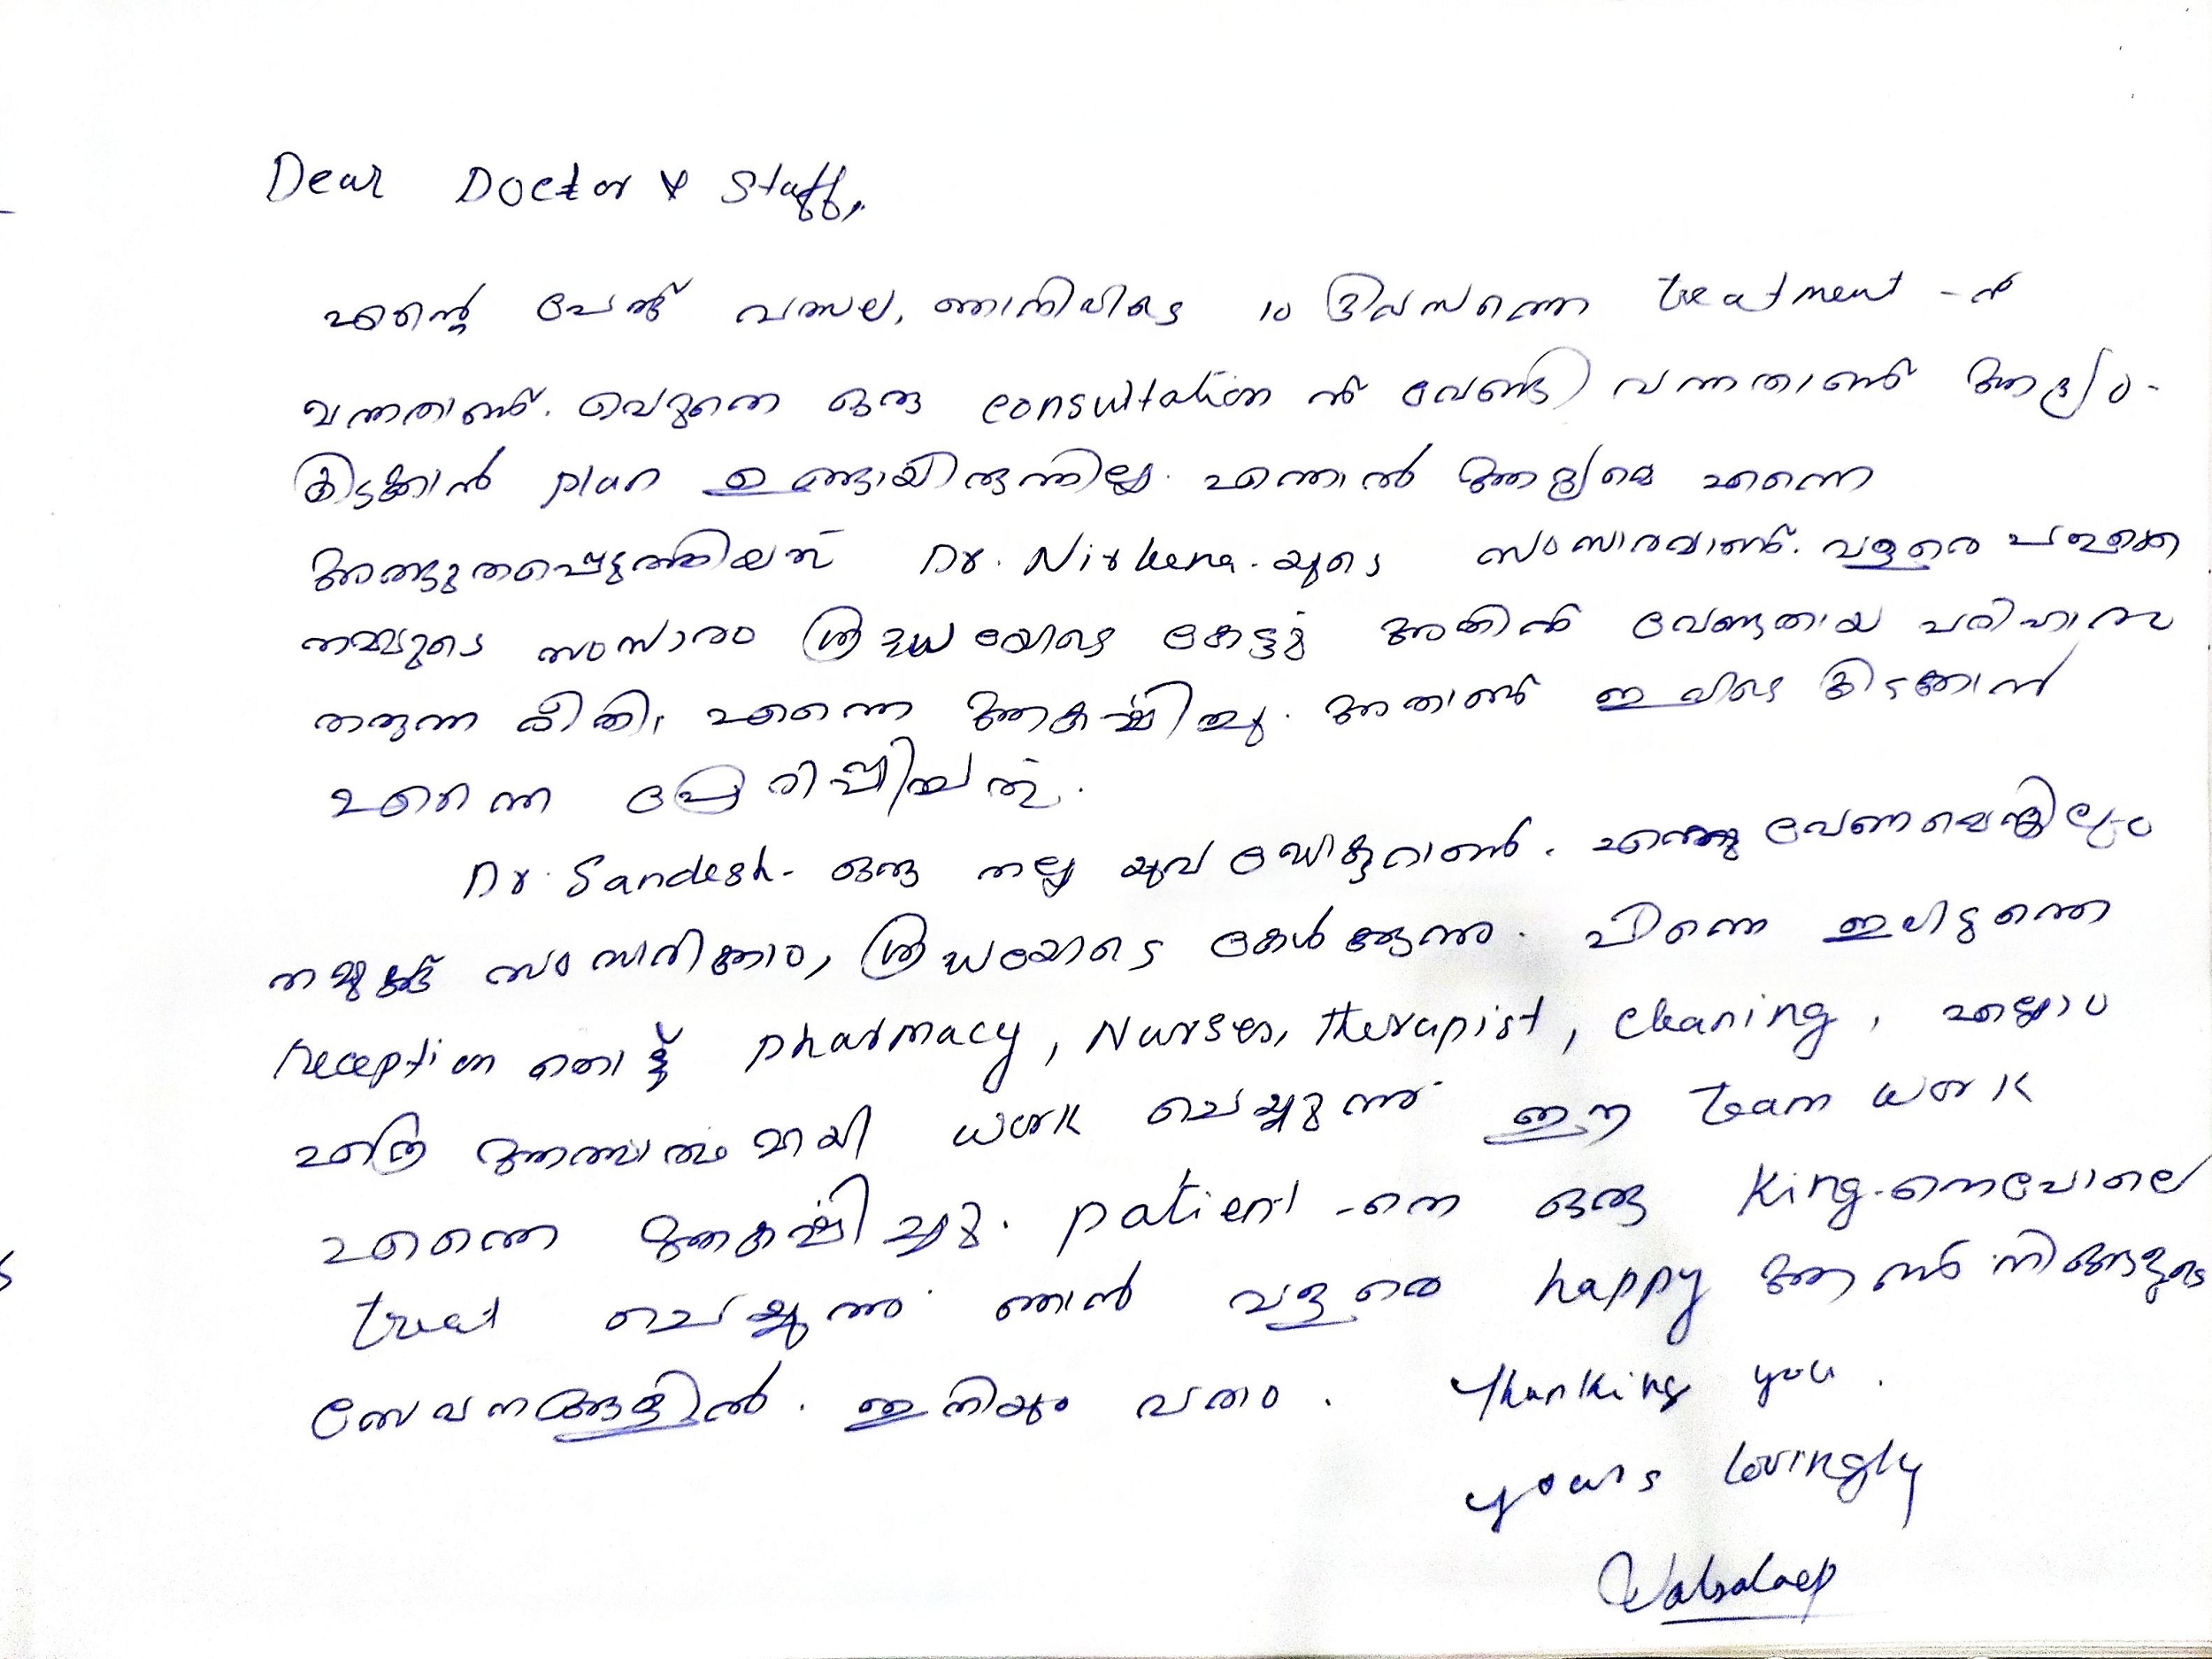 Dear Doctor & Staff,
എന്റെ പേര് വത്സല, ഞാനിവിടെ 10 ദിവസത്തെ treatment -ന്
വന്നതാണ്. വെറുതെ ഒരു consultation ന് വേണ്ടി വന്നതാണ് ആദ്യം.
കിടക്കാൻ plan ഉണ്ടായിരുന്നില്ല. എന്നാൽ ആദ്യമെ എന്നെ
അത്ഭുതപ്പെടുത്തിയത് Dr. യുടെ സംസാരമാണ്. വളരെ
നമ്മുടെ സംസാരം ശ്രദ്ധയോടെ കേട്ടു അതിന് വേണ്ടതായ പരിഹാരം
തരുന്ന രീതി, എന്നെ ആകർഷിച്ചു. അതാണ് ഇവിടെ കിടക്കാൻ
എന്നെ പ്രേരിപ്പിച്ചത്.
Dr. Sandesh- ഒരു നല്ല യുവ ഡോക്ടറാണ്. എന്തു വേണമെങ്കിലും
നമുക്ക് സംസാരിക്കാം, ശ്രദ്ധയോടെ കേൾക്കുന്നു. പിന്നെ ഇവിടുത്തെ
reception തൊട്ട് pharmacy, Nurses, therapist, cleaning, എല്ലാം
എത്ര ആത്മാർത്ഥമായി work ചെയ്യുന്നു ഈ team work
എന്നെ ആകർഷിച്ചു. patient -നെ ഒരു King-നെപോലെ
treat ചെയ്യുന്നു ഞാൻ വളരെ happy ആണ് നിങ്ങളുടെ
സേവനങ്ങളിൽ. ഇനിയും വരാം. Thanking you.
yours lovingly